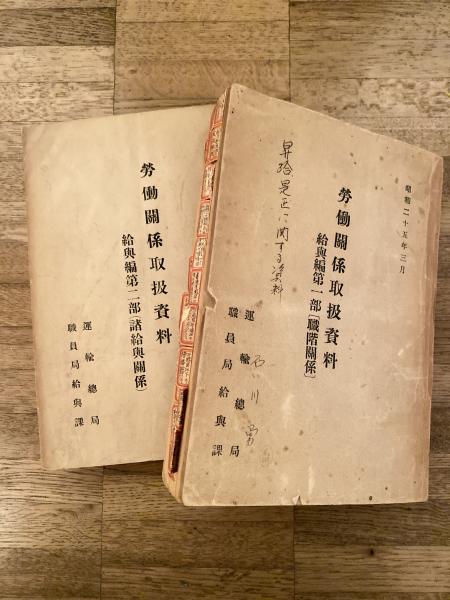 昭和二十五年三月
勞働關係取扱資料
給與編第一部〔職階關係〕
昇給是正に関する資料
運輸總局
職員局給與課
石川
勞働關係取扱資料
給與編第二部(諸給與關係)
運輸總局
職員局給與課